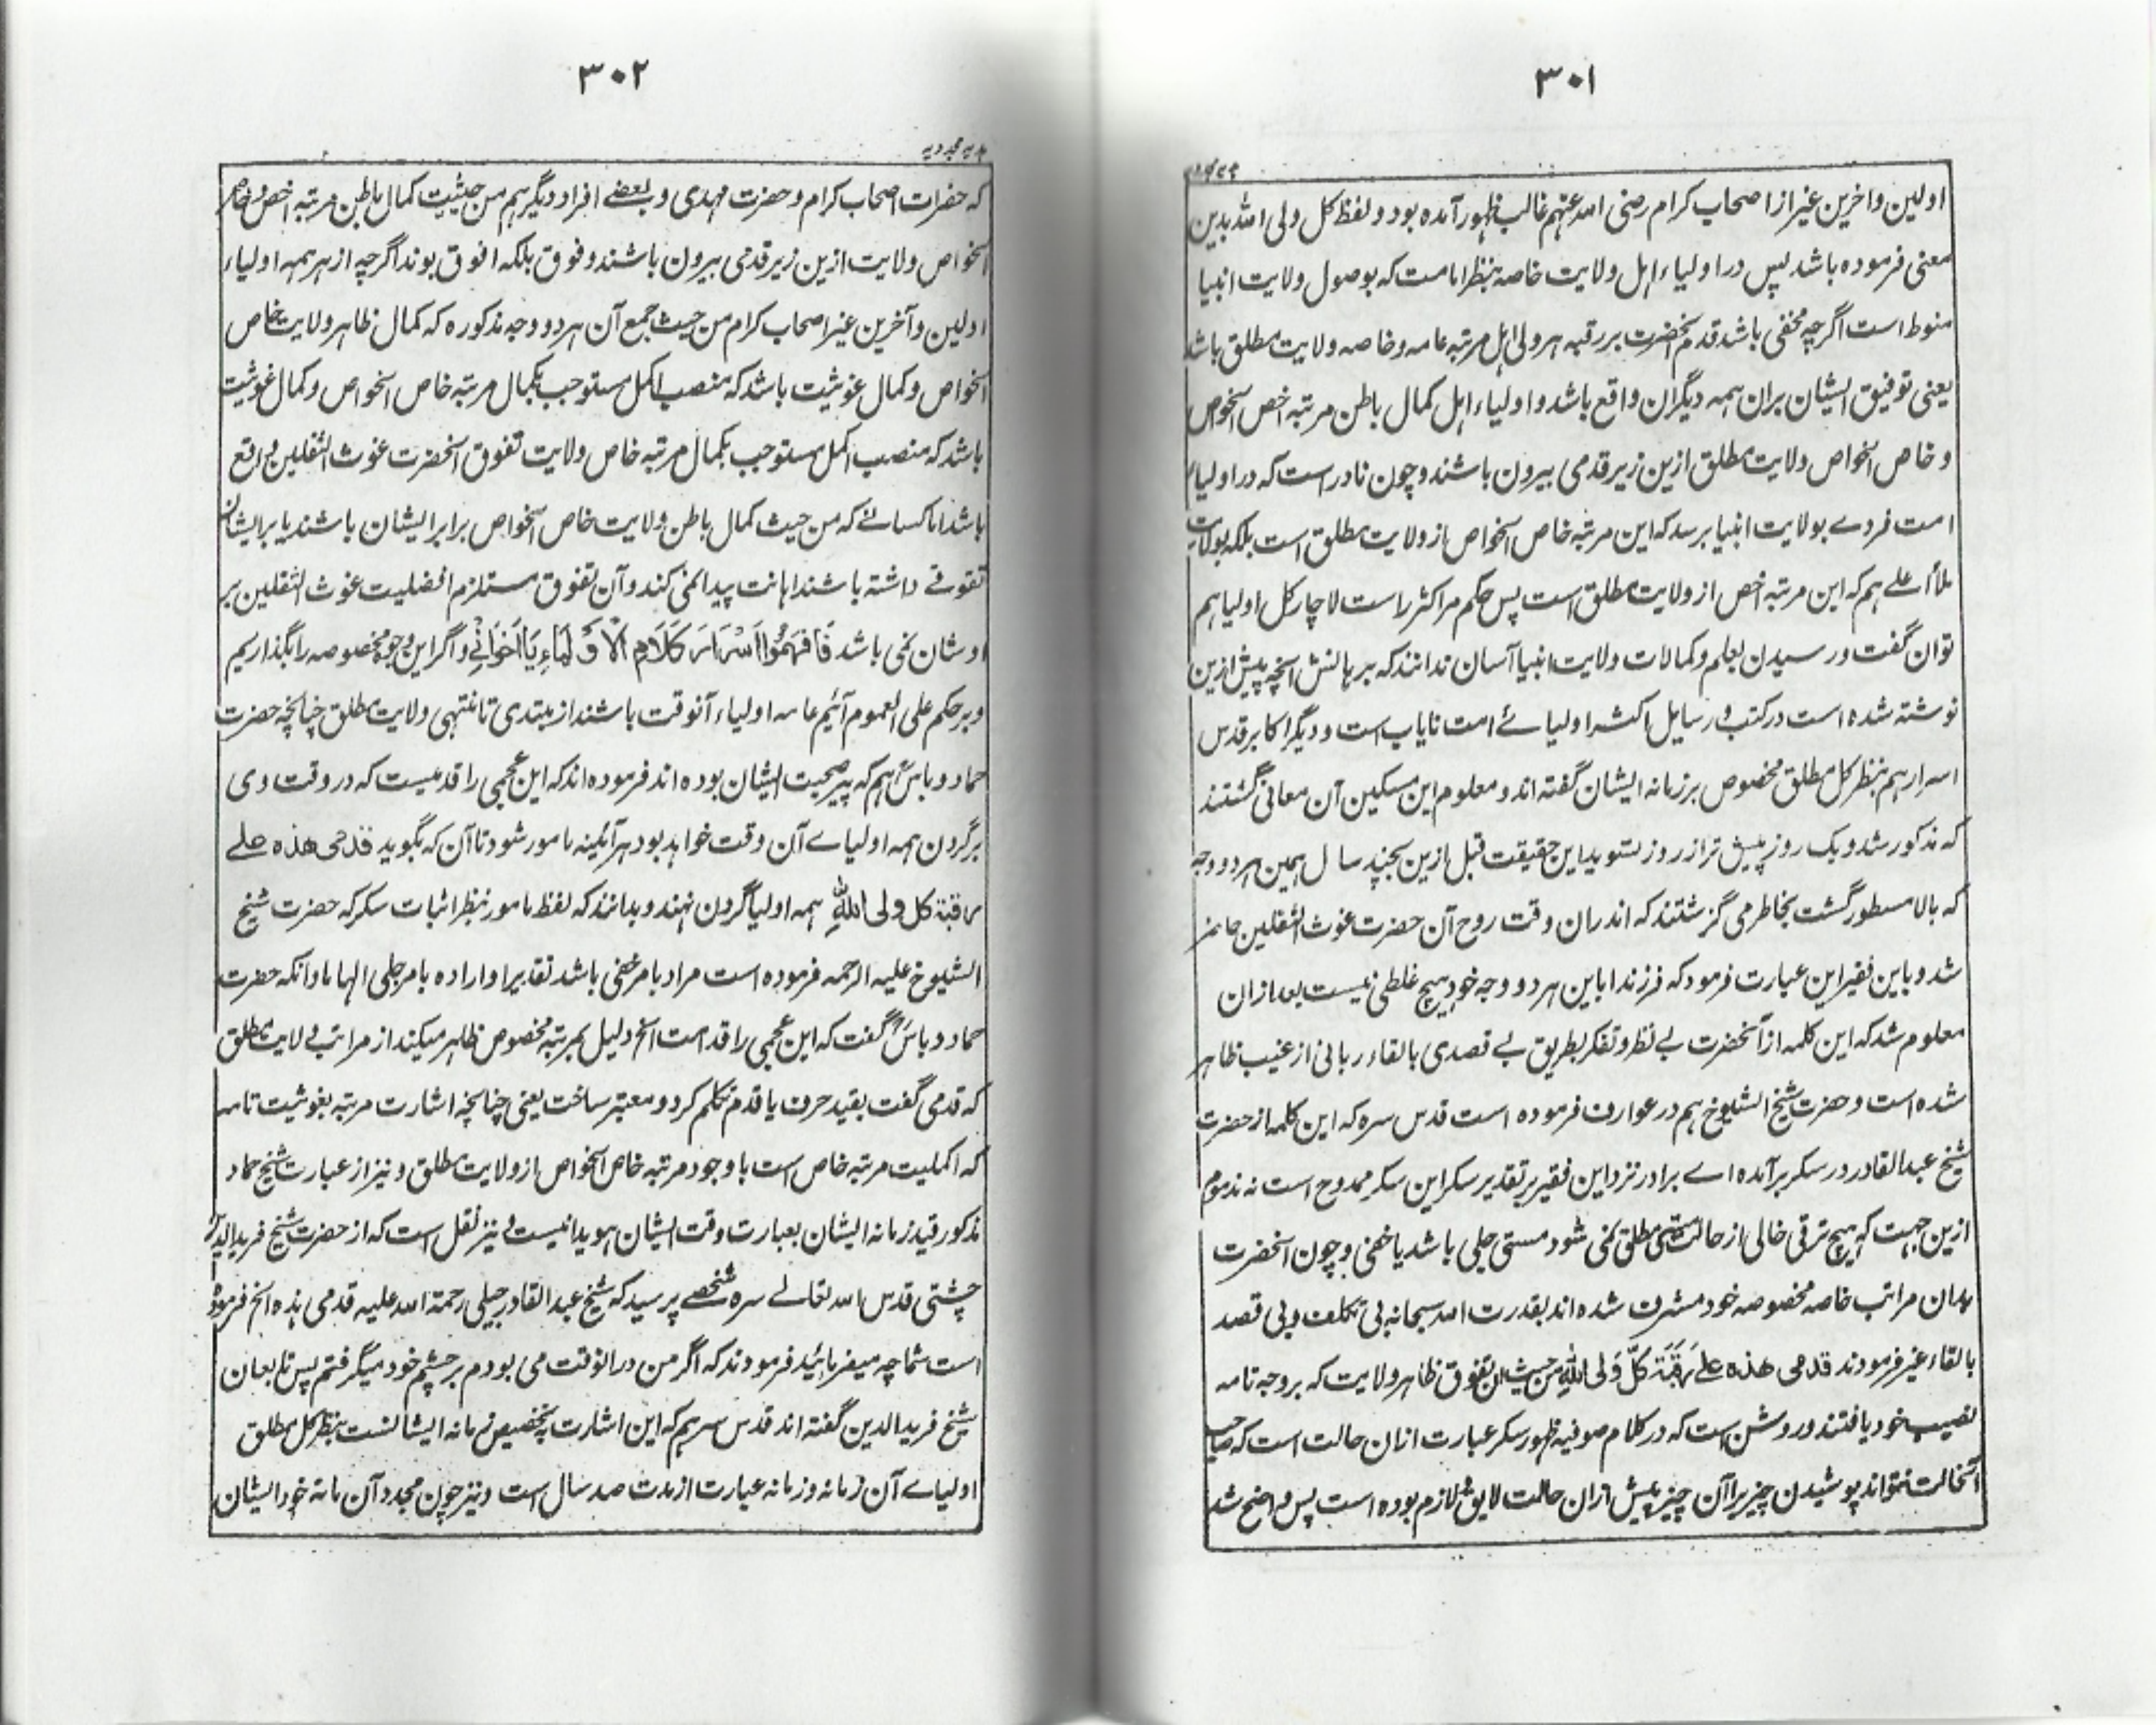 ۳۰۱
اولین و اخرین غیر از اصحاب کرام رضی الله عنهم غالب ظهور آمده بود و لفظ کل ولی الله بدین
معنی فرموده باشد پس در اولیاء اهل ولایت خاصه بنظر امامت که بوصول ولایت انبیا
منوط است اگرچه مخفی باشد قدم آنحضرت بر رقبه هر ولی اهل مرتبه عامه و خاصه ولایت مطلق باشد
یعنی توفیق ایشان بران همه دیگران واقع باشد و اولیاء اهل کمال باطن مرتبه اخص الخواص
و خاص الخواص ولایت مطلق ازین زیر قدمی بیرون باشند و چون نادر است که در اولیاء
امت فردے بولایت انبیا برسد که این مرتبه خاص الخواص از ولایت مطلق است بلکه بولایت
ملأ اعلے هم که این مرتبه اخص از ولایت مطلق است پس حکم مر اکثر راست لاچار کل اولیا هم
توان گفت و رسیدن بعلم و کمالات ولایت انبیا آسان ندانند که برهانش آنچه پیش ازین
نوشته شده است در کتب و رسایل اکثر اولیائے امت نایاب است و دیگر اکابر قدس
اسرارهم بنظر کل مطلق مخصوص بر زمانه ایشان گفته اند و معلوم این مسکین آن معانی گشتند
که مذکور شد و یک روز پیش تر از روز تسوید این حقیقت قبل ازین بچند سال همین هر دو وجه
که بالا مسطور گشت بخاطر می گزشتند که اندران وقت روح آن حضرت غوث الثقلین حاضر
شد و باین فقیر این عبارت فرمود که فرزندا باین هر دو وجه خود هیچ غلطی نیست بعد ازان
معلوم شد که این کلمه از آنحضرت بے نظر و تفکر بطریق بے قصدی بالقاء ربانی از غیب ظاهر
شده است و حضرت شیخ الشیوخ هم در عوارف فرموده است قدس سره که این کلمه از حضرت
شیخ عبد القادر در سکر برآمده اے برادر نزد این فقیر بر تقدیر سکر این سکر ممدوح است نه مذموم
ازین جهت که هیچ ترقی خالی از حالت مستی مطلق نمی شود مستی جلی باشد یا خفی و چون آنحضرت
بدان مراتب خاصه مخصوصه خود مشرف شده اند بقدرت الله سبحانه بی تکلف و بی قصد
بالقاء غیر فرمودند قدمی هذه علے رقبة کل ولی الله من حیث ان تفوق ظاهر ولایت که بر وجه تامه
نصیب خود یافتند و روشن است که در کلام صوفیه ظهور سکر عبارت ازان حالت است که صاحب
آنحالت نتواند پوشیدن چیزیرا آن چیز پیش ازان حالت لایق لازم بوده است پس واضح شد
۳۰۲
هدیه مجددیه
که حضرات اصحاب کرام و حضرت مهدی و بعضے افراد دیگر هم من حیثیت کمال باطن مرتبه اخص و خاص
الخواص ولایت ازین زیر قدمی بیرون باشند و فوق بلکه افوق بوند اگرچه از هر همه اولیاء
اولین و آخرین غیر اصحاب کرام من حیث جمع آن هر دو وجه مذکوره که کمال ظاهر ولایت خاص
الخواص و کمال غوثیت باشد که منصب اکمل مستوجب بکمال مرتبه خاص الخواص و کمال غوثیت
باشد که منصب اکمل مستوجب بکمال مرتبه خاص ولایت تفوق آنحضرت غوث الثقلین واقع
باشد اما کسانے که من حیث کمال باطن ولایت خاص الخواص برابر ایشان باشند یا بر ایشان
تفوقے داشته باشند اهانت پیدا نمی کند و آن تفوق مستلزم افضلیت غوث الثقلین بر
اوشان نمی باشد فَافْهَمُوا اَسْرَارَ کَلَامِ الْاَوْلِیَاءِ یَا اَخَوَانِیْ و اگر این وجوه مخصوصه را بگذاریم
و بر حکم علی العموم آئیم عامه اولیاء آنوقت باشند از مبتدی تا منتهی ولایت مطلق چنانچه حضرت
حماد دباس هم که پیر صحبت ایشان بوده اند فرموده اند که این عجمی را قدمیست که در وقت وی
بر گردن همه اولیاے آن وقت خواهد بود هر آئینه مامور شود تا آن که بگوید قدمی هذه علے
رقبة کل ولی الله همه اولیا گردن نهند و بدانند که لفظ مامور بنظر اثبات سکر که حضرت شیخ
الشیوخ علیه الرحمه فرموده است مراد بامر خفی باشد تقدیرا و اراده بامر جلی الهاما و آنکه حضرت
حماد دباس گفت که این عجمی را قدم است الخ دلیل بمرتبه مخصوص ظاهر میکند از مراتب ولایت مطلق
که قدمی گفت بقید حرف یا قدم تکلم کرد و معتبر ساخت یعنی چنانچه اشارت مرتبه بغوثیت تامه
که اکملیت مرتبه خاص است با وجود مرتبه خاص الخواص از ولایت مطلق و نیز از عبارت شیخ حماد
مذکور قید زمانه ایشان بعبارت وقت ایشان هویدا نیست و نیز نقل است که از حضرت شیخ فرید الدین
چشتی قدس الله تعالے سره شخصے پرسید که شیخ عبد القادر جیلی رحمة الله علیه قدمی هذه الخ فرموده
است شما چه میفرمائید فرمودند که اگر من درانوقت می بودم بر چشم خود میگرفتم پس تابعان
شیخ فرید الدین گفته اند قدس سرهم که این اشارت بتخصیص زمانه ایشانست بنظر کل مطلق
اولیاے آن زمانه و زمانه عبارت از مدت صد سال است و نیز چون مجدد آن مائة خود ایشان